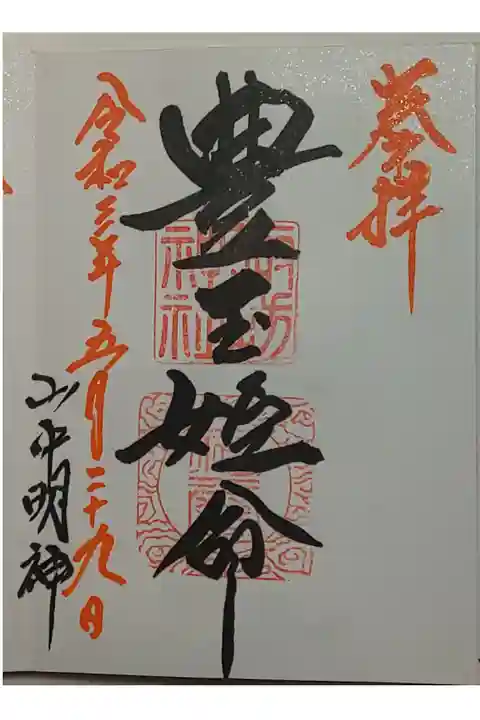 奉拝
豊玉姫命
令和三年五月二十九日
山中明神